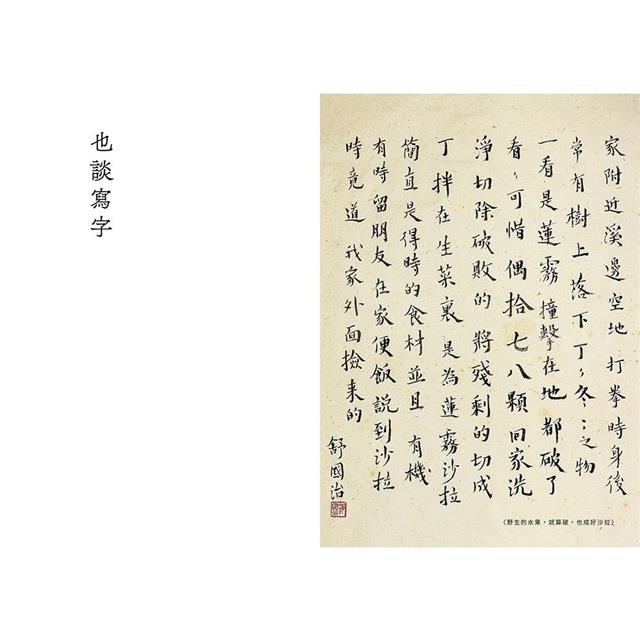 也談寫字
家附近溪邊空地 打拳時身後
常有樹上落下丁丶冬〻之物
一看是蓮霧 撞擊在地都破了
看丶可惜 偶拾七八顆回家洗
淨切除破敗的 將殘剩的切成
丁 拌在生菜裏 是為蓮霧沙拉
簡直是得時的食材並且有機
有時留朋友在家便飯說到沙拉
時竟道 我家外面撿來的
舒國治
〈野生的水果，就算破，也成好沙拉〉